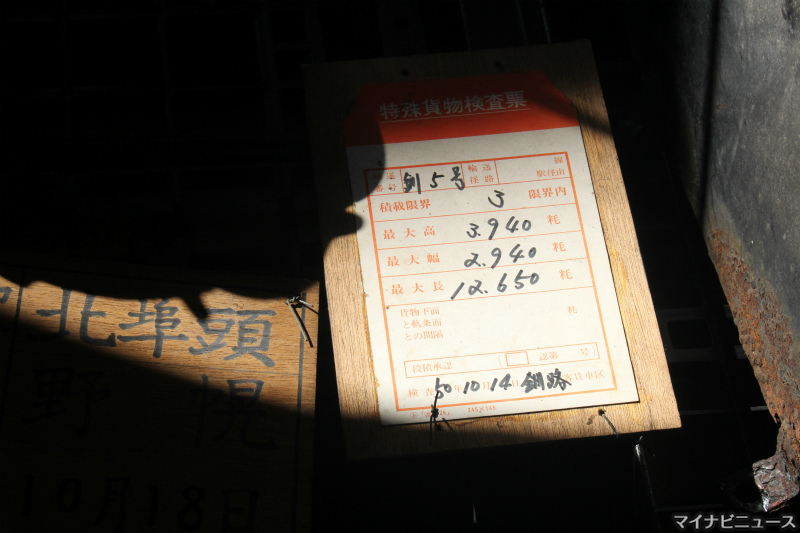 特殊貨物検査票
釧5号
輸送
径路
線
駅径由
積載限界 3 限界内
最大高 3.940 粍
最大幅 2.940 粍
最大長 12.650 粍
貨物下面
と軌条面
との間隔
粍
段積承認
認第 号
検査 50 10 14 釧路 客貨車区
北埠頭
野幌
10月18日
マイナビニュース